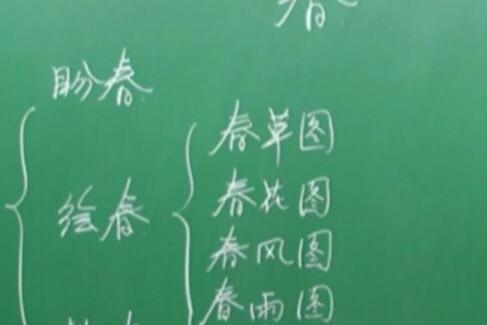 春
盼春
春草图
绘春
春花图
春风图
春雨图